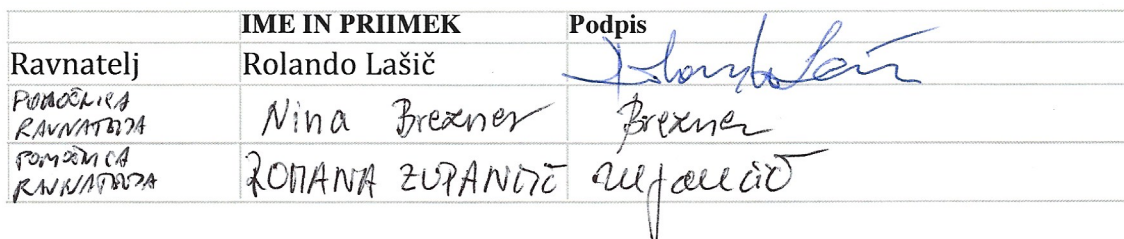 IME IN PRIIMEK Podpis
Ravnatelj Rolando Lašič
POMOČNICA
RAVNATELJA Nina Brexner Brexner
POMOČNICA
RAVNATELJA ROMANA ZUPANČIČ